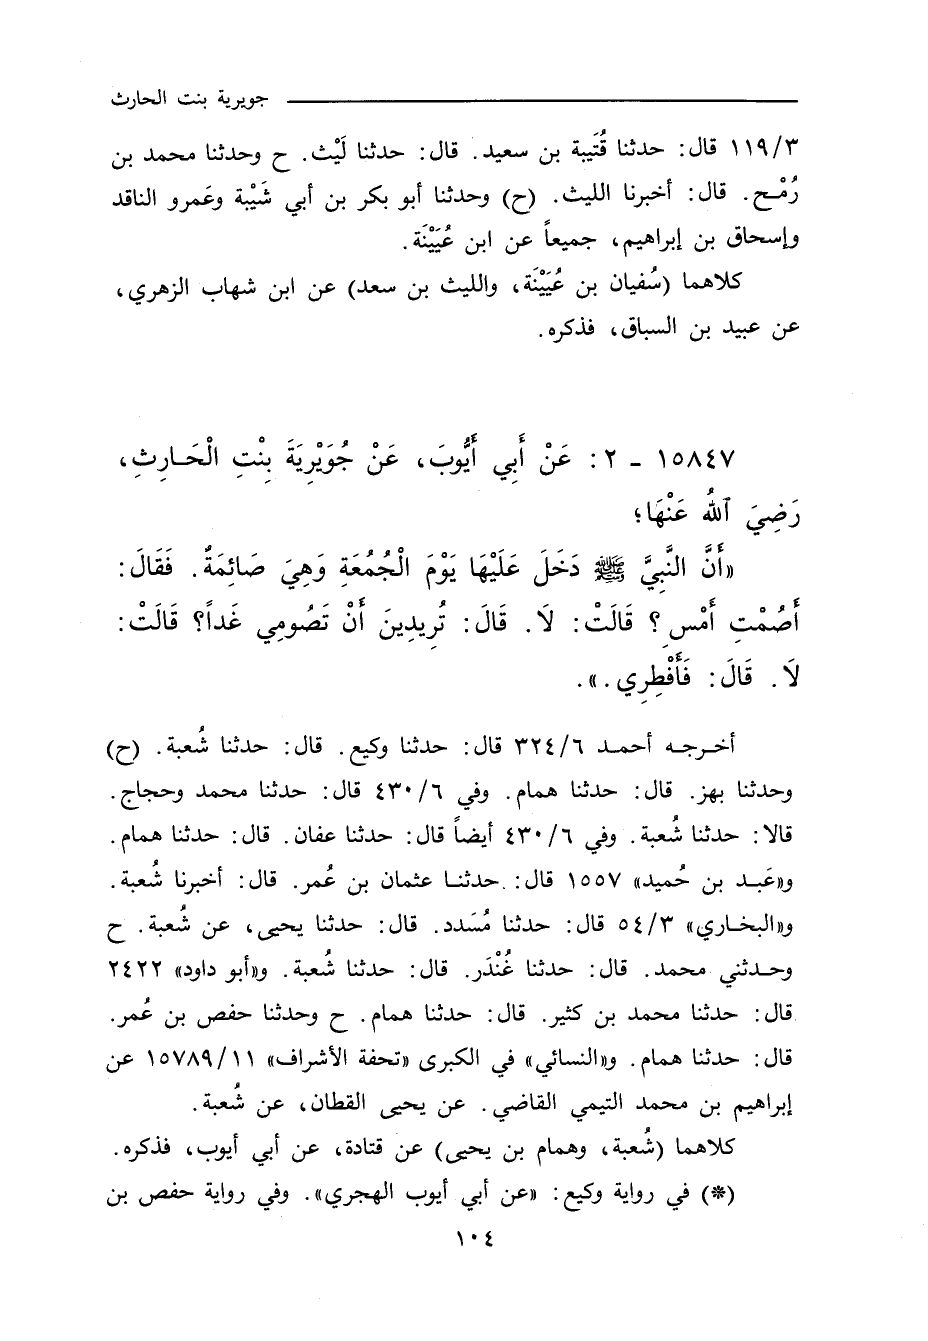 جويرية بنت الحارث
١١٩/٣ قال: حدثنا قُتَيبة بن سعيد. قال: حدثنا لَيْث. ح وحدثنا محمد بن
رُمْـح. قال: أخبرنا الليث. (ح) وحدثنا أبو بكر بن أبي شَيْبة وعَمرو الناقد
وإسحاق بن إبراهيم، جميعاً عن ابن عُيَيْنَة.
كلاهما (سُفيان بن عُيَيْنَة، والليث بن سعد) عن ابن شهاب الزهري،
عن عبيد بن السباق، فذكره.
١٥٨٤٧ - ٢: عَنْ أَبِي أَيُّوبَ، عَنْ جُوَيْرِيَةَ بِنْتِ الْحَـارِثِ،
رَضِيَ ٱللهُ عَنْهَا؛
«أَنَّ النَّبِيَّ ﷺ دَخَلَ عَلَيْهَا يَوْمَ الْجُمُعَةِ وَهِيَ صَائِمَةٌ. فَقَالَ:
أَصُمْتِ أَمْسِ؟ قَالَتْ: لَا. قَالَ: تُرِيدِينَ أَنْ تَصُومِي غَداً؟ قَالَتْ:
لَا. قَالَ: فَأَفْطِرِي.».
أخـرجـه أحمـد ٣٢٤/٦ قال: حدثنا وكيع. قال: حدثنا شُعبة. (ح)
وحدثنا بهز. قال: حدثنا همام. وفي ٤٣٠/٦ قال: حدثنا محمد وحجاج.
قالا: حدثنا شُعبة. وفي ٤٣٠/٦ أيضاً قال: حدثنا عفان. قال: حدثنا همام.
و«عَبـد بن حُميد» ١٥٥٧ قال: حدثنـا عثمان بن عُمر. قال: أخبرنا شُعبة.
و«البخـاري» ٥٤/٣ قال: حدثنا مُسَدد. قال: حدثنا يحيى، عن شُعبة. ح
وحـدثني محمد. قال: حدثنا غُنْدَر. قال: حدثنا شُعبة. و«أبو داود» ٢٤٢٢
قال: حدثنا محمد بن كثير. قال: حدثنا همام. ح وحدثنا حفص بن عُمر.
قال: حدثنا همام. و«النسائي» في الكبرى «تحفة الأشراف» ١٥٧٨٩/١١ عن
إبراهيم بن محمد التيمي القاضي. عن يحيى القطان، عن شُعبة.
كلاهما (شُعبة، وهمام بن يحيى) عن قتادة، عن أبي أيوب، فذكره.
(*) في رواية وكيع: «عن أبي أيوب الهجري». وفي رواية حفص بن
١٠٤